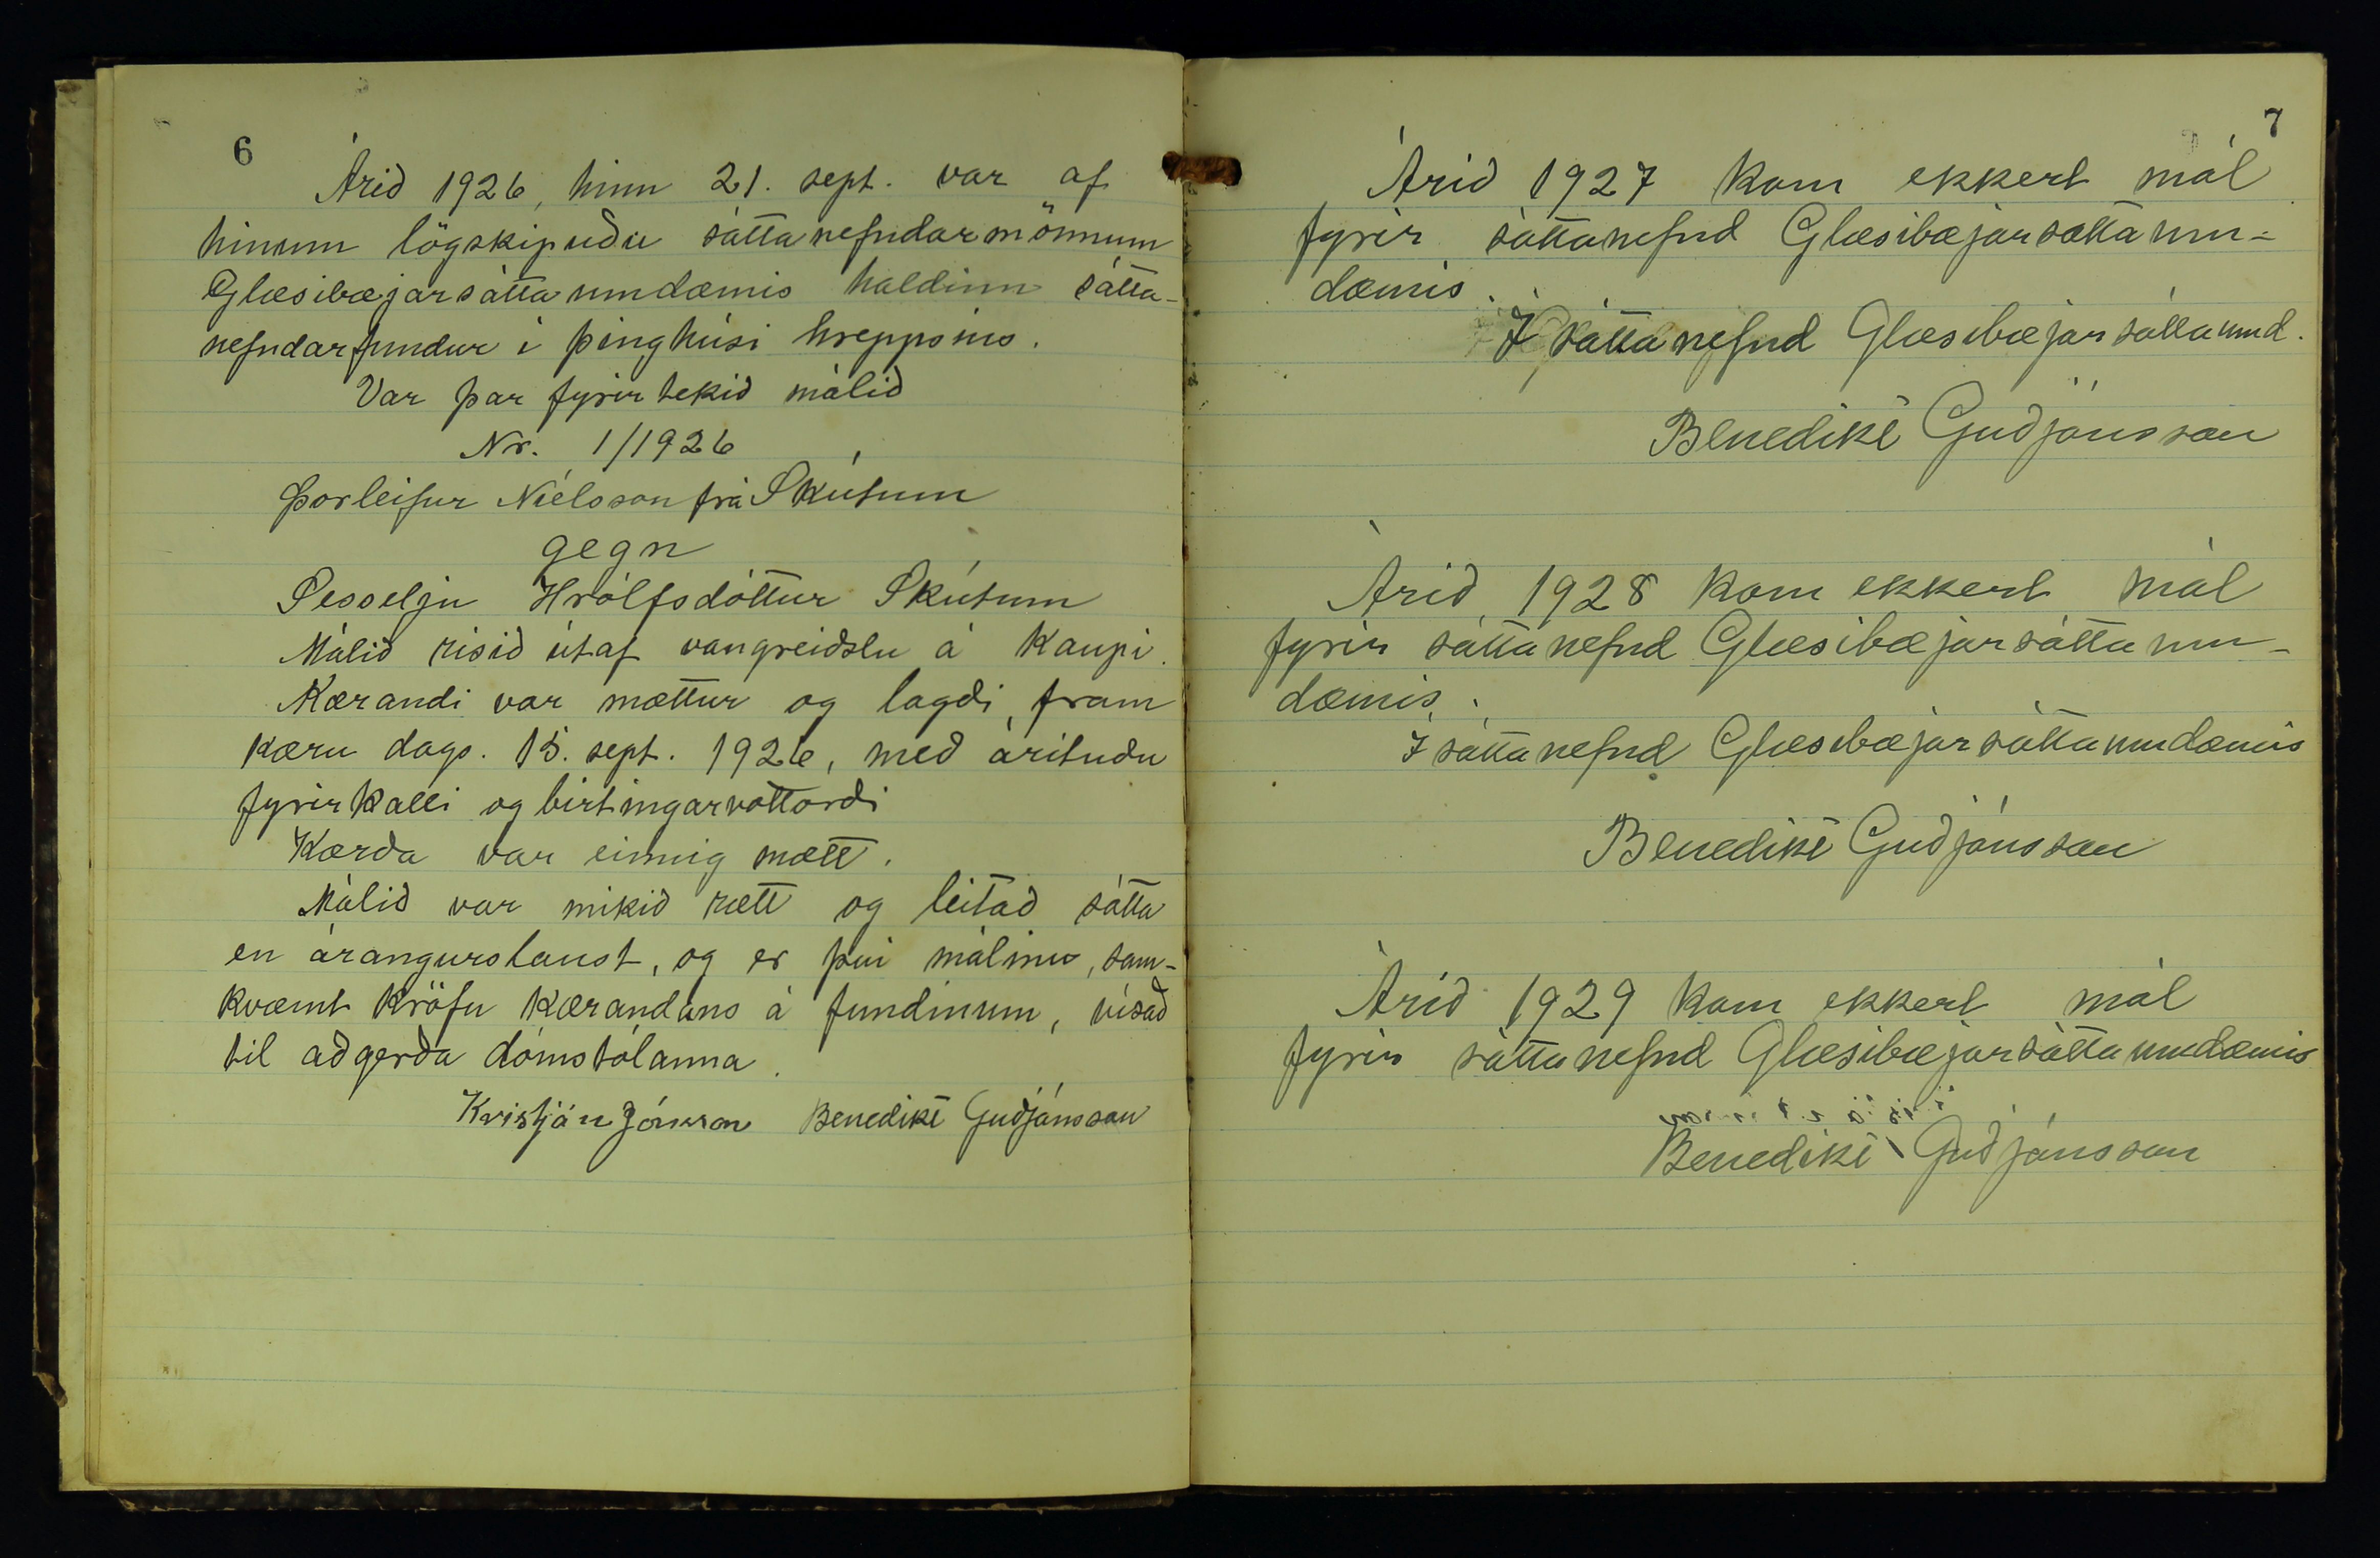 6
Árið 1926, hinn 21. sept. var af
hinum lögskipuðu sáttanefndarmönnum
Glæsibæjarsáttaumdæmis haldinn sátta-
nefndarfundur í þinghúsi hreppsins.
Var þar fyrirtekið málið
Nr. 1/1926
Þorleifur Níelsson frá Skútum
gegn
Sesselju Hrólfsdóttur Skútum
Málið risið útaf vangreiðslu á kaupi.
Kærandi var mættur og lagði fram
kæru dags. 15. sept. 1926, með árituðu
fyrirkalli og birtingarvottorði
Kærða var einnig mætt.
Málið var mikið rætt og leitað sátta
en árangurslaust, og er því málinu, sam-
kvæmt kröfu kærandans á fundinum, vísað
til aðgerða dómstólanna.
Kristján Jónsson Benedikt Guðjónsson
7
Árið 1927 kom ekkert mál
fyrir sáttanefnd Glæsibæjarsáttaum-
dæmis.
Í sáttanefnd Glæsibæjarsáttaumd.
Benedikt Guðjónsson
Árið 1928 kom ekkert mál
fyrir sáttanefnd Glæsibæjarsáttaum-
dæmis.
Í sáttanefnd Glæsibæjarsáttaumdæmis
Benedikt Guðjónsson
Árið 1929 kom ekkert mál
fyrir sáttanefnd Glæsibæjarsáttaumdæmis
Benedikt Guðjónsson